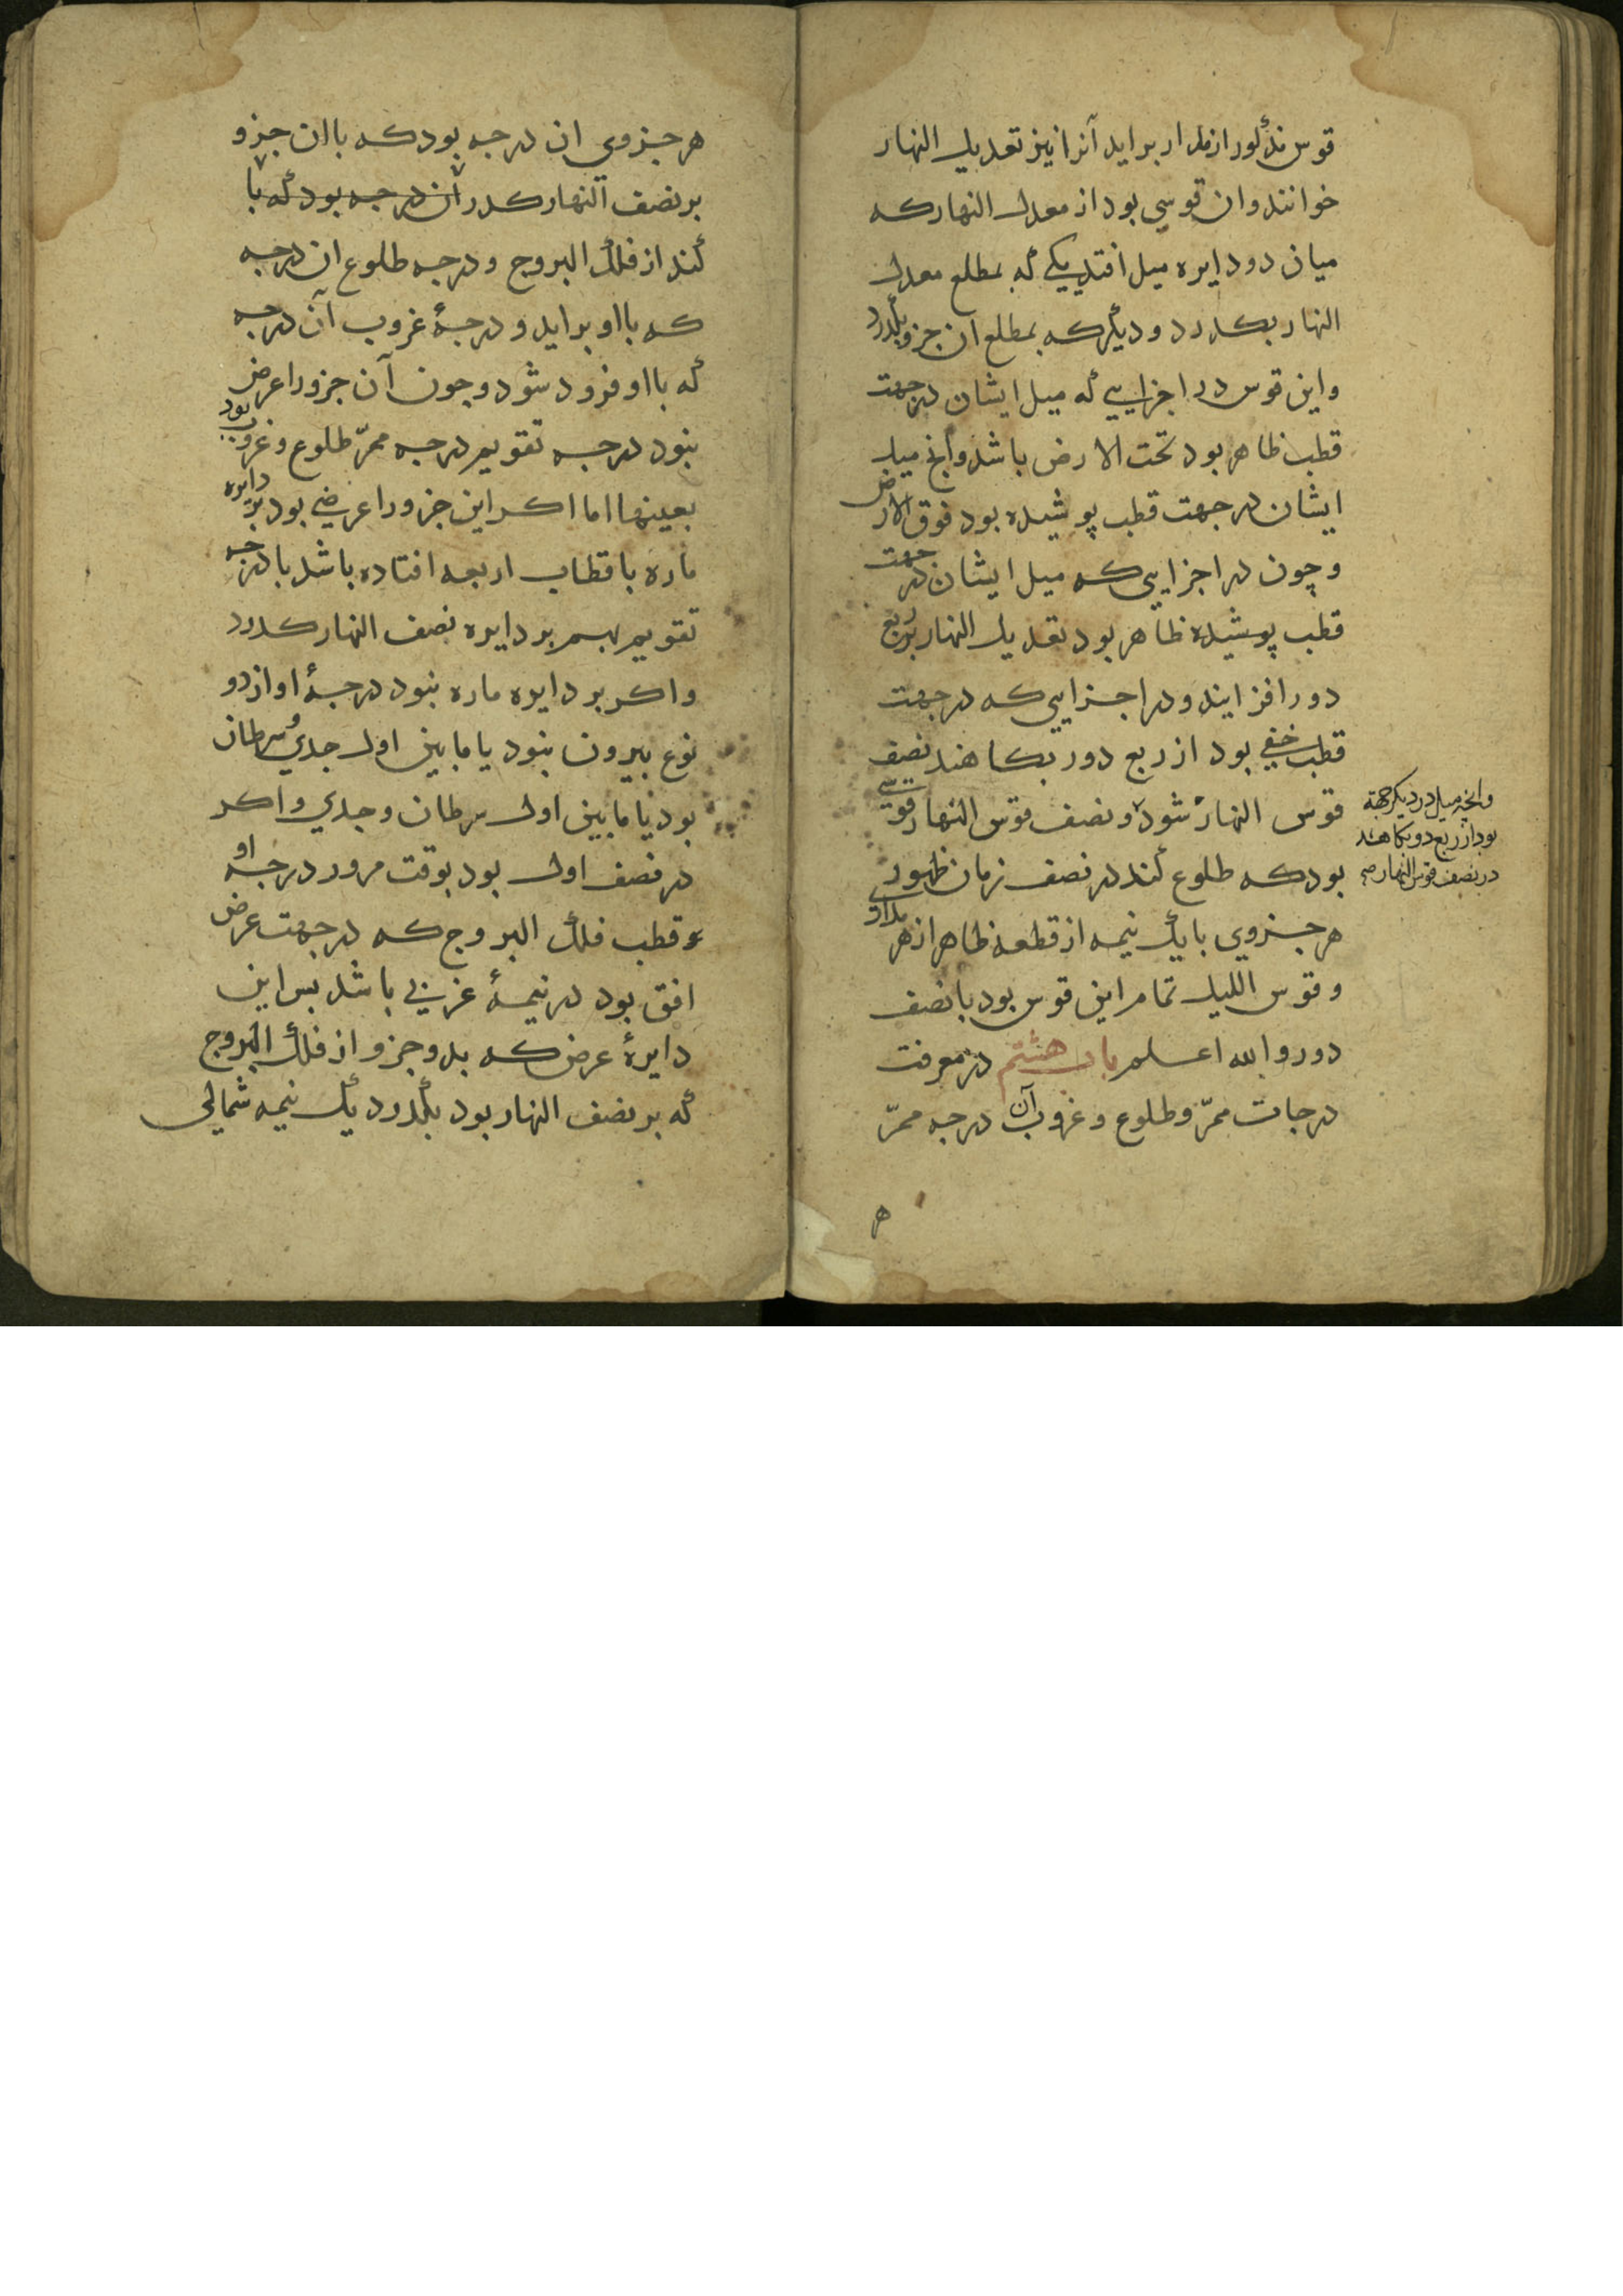 قوس مذکور از مدار برابد آنرا نیز تعدیل النهار
خوانند وان قوسی بود از معدل النهار که
میان دو دایره میل افتد یکی که بمطلع معدل
النهار بکدرد و دیگر که بمطلع ان جزو بگذرد
واین قوس در اجزایی که میل ایشان در جهت
قطب ظاهر بود تحت الارض باشد وانج میل
ایشان در جهت قطب پوشیده بود فوق الارض
وچون در اجزایی که میل ایشان در جهت
قطب پوشیده ظاهر بود تعدیل النهار بر ربع
دور افزایند و در اجزایی که در جهت
قطب خفی بود از ربع دور بکاهند نصف
قوس النهار شود و نصف قوس النهار قوسی
بود که طلوع کند در نصف زمان ظهور
هر جزوی با یک نیمه از قطعه ظاهر از هر مداری
وقوس اللیل تمام این قوس بود با نصف
دور والله اعلم باب هشتم در معرفت
درجات ممرّ وطلوع وغروب آن درجه ممرّ
وانچه میل در دیکر جهة
بود از ربع دو بکاهند
در نصف قوس النهار صح
هر جزوی ان درجه بود که باان جزو
بر نصف النهار کدر ان درجه بود که با
کند از فلک البروج و درجه طلوع ان درجه
که بااو براید و درجهٔ غروب آن درجه
که بااو فرود شود وجون آن جزو را عرض
نبود درجه تقویم درجه ممرّ طلوع وغروب بود
بعینها اما اکر این جزو را عرضی بود بر دایره
ماره باقطاب اربعه افتاده باشد با درجه
تقویم بهم بر دایره نصف النهار کدرد
واکر بر دایره ماره نبود درجهٔ او از دو
نوع بیرون نبود یا مابین اول جدی و سرطان
بود یا مابین اول سرطان وجدی واکر
در نصف اول بود بوقت مرور درجه او
و قطب فلک البروج که در جهت عرض
افق بود در نیمهٔ غربی باشد بس این
دایرهٔ عرض که بدو جزو از فلک البروج
که بر نصف النهار بود بگذرد یک نیمه شمالی